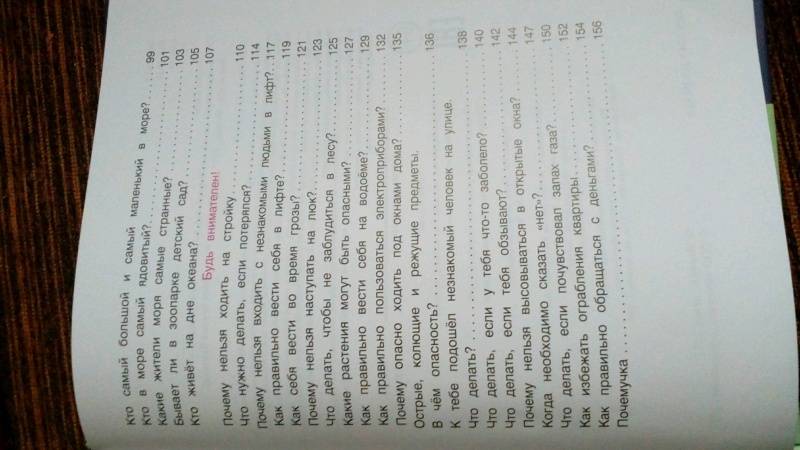 Кто самый большой и самый маленький в море? . . 99
Кто в море самый ядовитый? . . . . . . . . . . 101
Какие жители моря самые странные? . . . . . . . 103
Бывает ли в зоопарке детский сад? . . . . . . . 105
Кто живёт на дне океана? . . . . . . . . . . . 107
Будь внимателен!
Почему нельзя ходить на стройку . . . . . . . . 110
Что нужно делать, если потерялся? . . . . . . . 114
Почему нельзя входить с незнакомыми людьми в лифт? . . 117
Как правильно вести себя в лифте? . . . . . . . 119
Как себя вести во время грозы? . . . . . . . . 121
Почему нельзя наступать на люк? . . . . . . . . 123
Что делать, чтобы не заблудиться в лесу? . . . . 125
Какие растения могут быть опасными? . . . . . . 127
Как правильно вести себя на водоёме? . . . . . . 129
Как правильно пользоваться электроприборами? . . 132
Почему опасно ходить под окнами дома? . . . . . 135
Острые, колющие и режущие предметы.
В чём опасность? . . . . . . . . . . . . . . . 136
К тебе подошёл незнакомый человек на улице.
Что делать? . . . . . . . . . . . . . . . . . . 138
Что делать, если у тебя что-то заболело? . . . . 140
Что делать, если тебя обзывают? . . . . . . . . 142
Почему нельзя высовываться в открытые окна? . . 144
Когда необходимо сказать «нет»? . . . . . . . . 147
Что делать, если почувствовал запах газа? . . . 150
Как избежать ограбления квартиры . . . . . . . . 152
Как правильно обращаться с деньгами? . . . . . . 154
Почемучка . . . . . . . . . . . . . . . . . . . 156